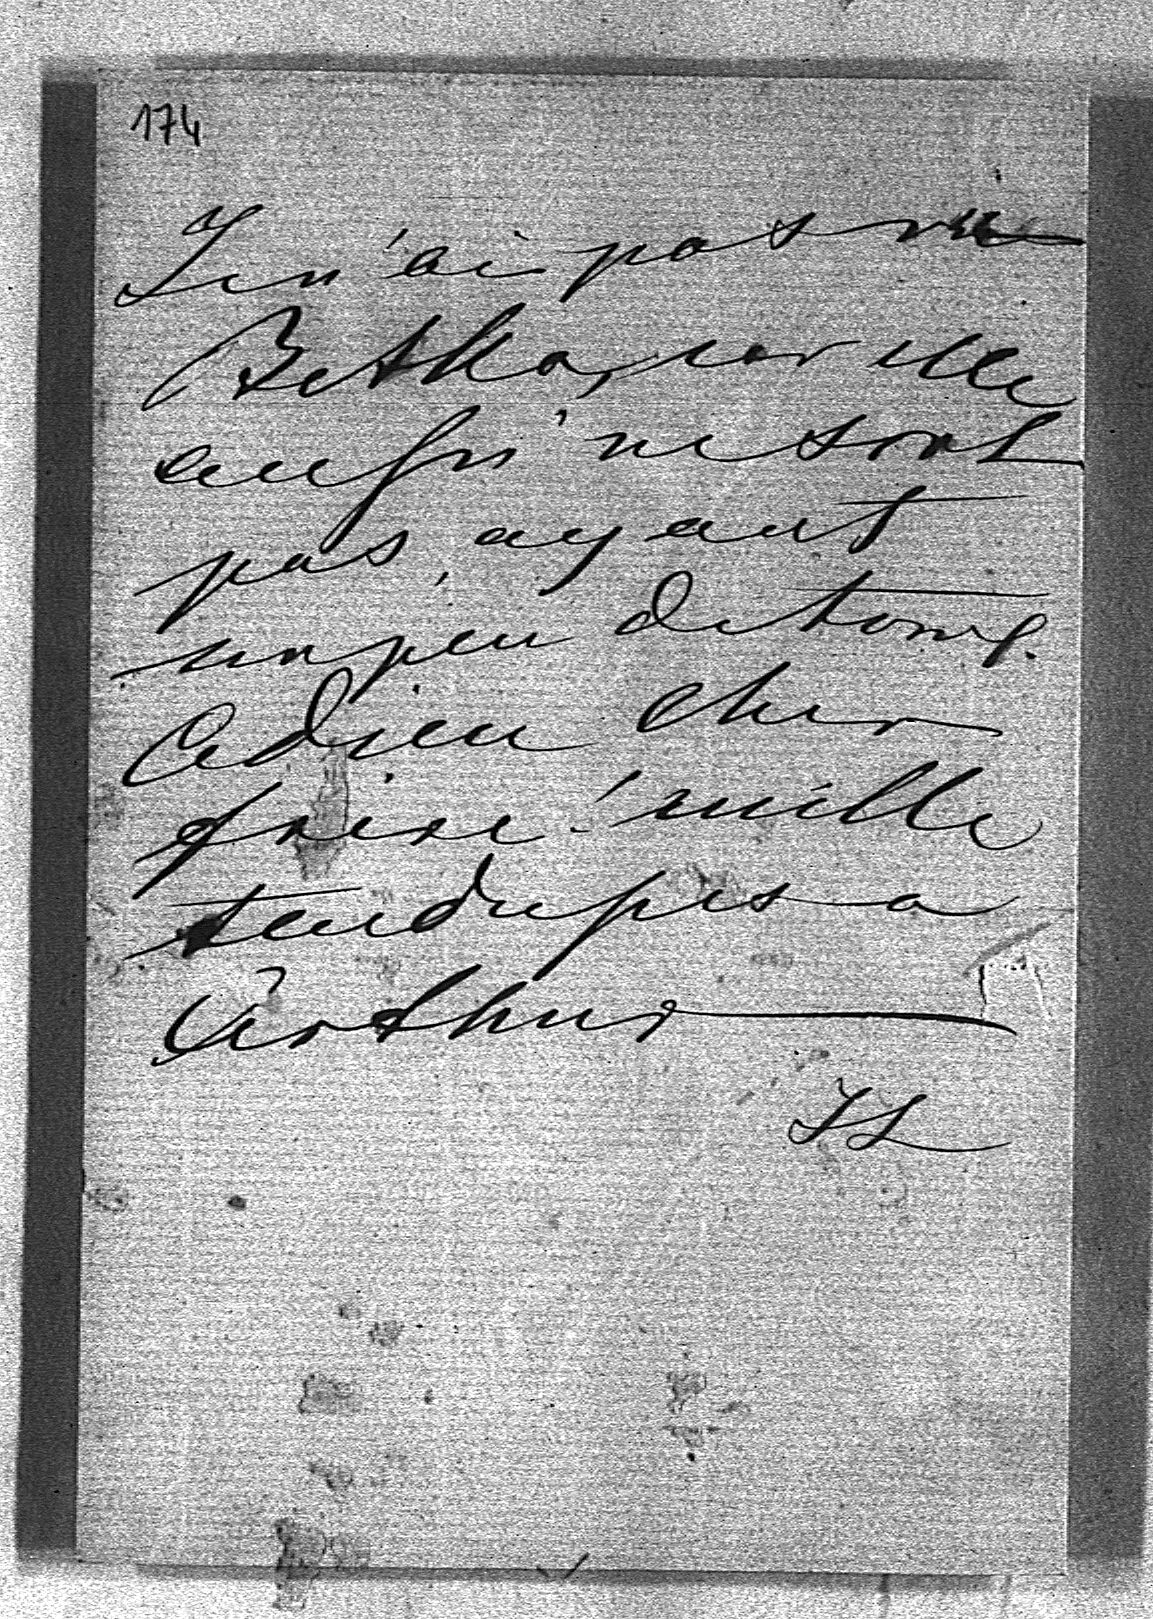 174
Je n'ai pas vu
Betka, car elle
aussi ne sort
pas, ayant
un peu de toux.
Adieu cher
frère! mille
tendresses a
Arthur